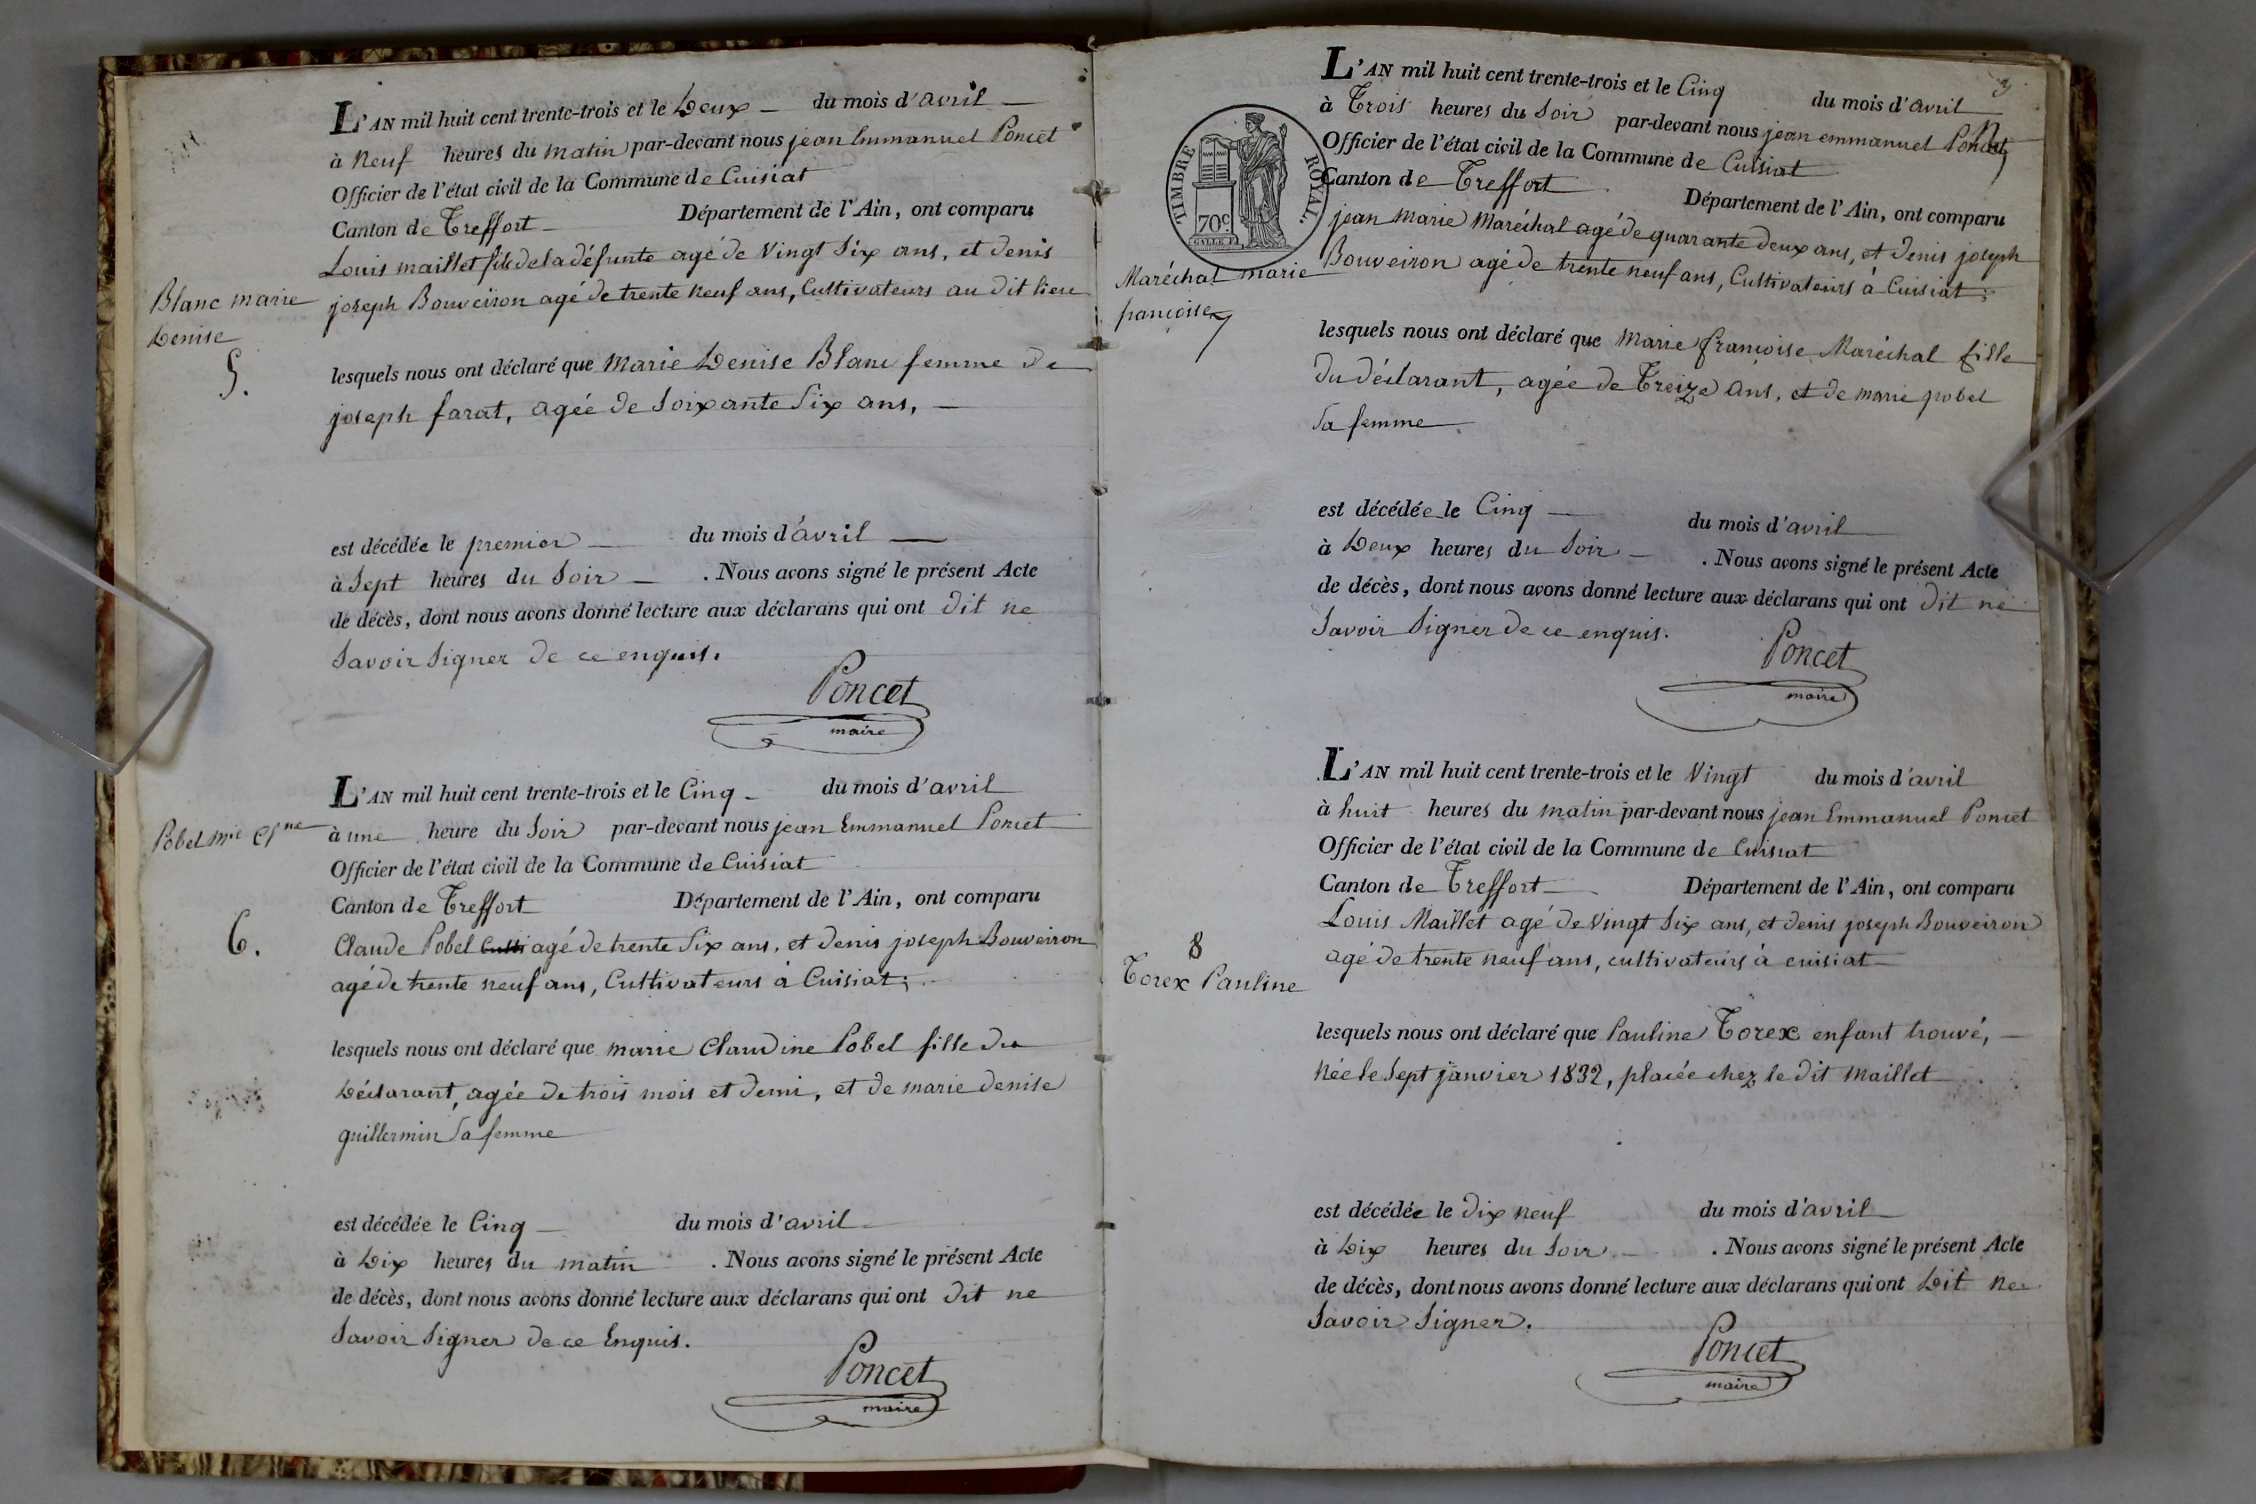 L'AN mil huit cent trente-trois et le Deux du mois d'avril
à neuf heures du matin par-devant nous jean Emmanuel Poncet
Officier de l'état civil de la Commune de Cuisiat
Canton de Treffort Département de l'Ain, ont comparu
Louis maillet fils de la défunte agé de Vingt Six ans, et denis
joseph Bouveiron agé de trente neuf ans, Cultivateurs au dit lieu
Blanc marie
Denise
5.
lesquels nous ont déclaré que Marie Denise Blanc femme de
joseph farat, agée de Soixante Six ans,
est décédée le premier du mois d'avril
à Sept heures du Soir . Nous avons signé le présent Acte
de décès, dont nous avons donné lecture aux déclarans qui ont dit ne
Savoir Signer de ce enquis.
Poncet
maire
L'AN mil huit cent trente-trois et le Cinq du mois d'avril
Pobel mie Clne
à une heure du Soir par-devant nous jean Emmanuel Poncet
Officier de l'état civil de la Commune de Cuisiat
Canton de Treffort Département de l'Ain, ont comparu
6.
Claude Pobel agé de trente Six ans, et denis joseph Bouveiron
agé de trente neuf ans, Cultivateurs à Cuisiat;
lesquels nous ont déclaré que marie Claudine Pobel fille du
Déclarant, agée de trois mois et demi, et de marie denise
guillermin Sa femme
est décédée le Cinq du mois d'avril
à Dix heures du matin . Nous avons signé le présent Acte
de décès, dont nous avons donné lecture aux déclarans qui ont dit ne
Savoir Signer de ce Enquis.
Poncet
maire
3
L'AN mil huit cent trente-trois et le Cinq du mois d'avril
à Trois heures du Soir par-devant nous jean emmanuel Poncet
Officier de l'état civil de la Commune de Cuisiat
Canton de Treffort Département de l'Ain, ont comparu
TIMBRE ROYAL.
70c
jean Marie Maréchal agé de quarante deux ans, et Denis joseph
Bouveiron agé de trente neuf ans, Cultivateurs à Cuisiat;
Maréchal marie
françoise
7
lesquels nous ont déclaré que Marie françoise Maréchal fille
du déclarant, agée de Treize ans, et de marie pobel
Sa femme
est décédée le Cinq du mois d'avril
à Deux heures du Soir . Nous avons signé le présent Acte
de décès, dont nous avons donné lecture aux déclarans qui ont dit ne
Savoir Signer de ce enquis.
Poncet
maire
L'AN mil huit cent trente-trois et le Vingt du mois d'avril
à huit heures du matin par-devant nous jean Emmanuel Poncet
Officier de l'état civil de la Commune de Cuisiat
Canton de Treffort Département de l'Ain, ont comparu
Louis Maillet agé de Vingt Six ans, et denis joseph Bouveiron
agé de trente neuf ans, cultivateurs à cuisiat
8
Torex Pauline
lesquels nous ont déclaré que Pauline Torex enfant trouvé,
Née le Sept janvier 1832, placée chez le dit Maillet
est décédée le dix neuf du mois d'avril
à Dix heures du Soir . Nous avons signé le présent Acte
de décès, dont nous avons donné lecture aux déclarans qui ont Dit ne
Savoir Signer.
Poncet
maire